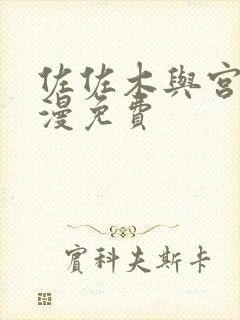 佐佐木與宮
漫免費
賓科夫斯卡